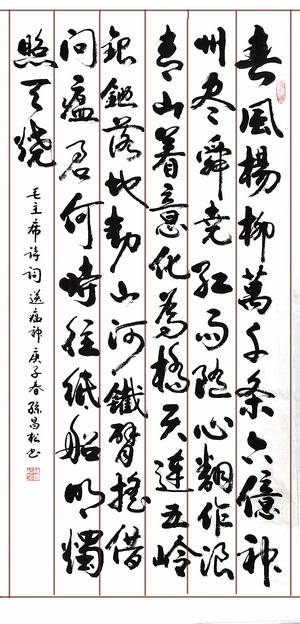 春風楊柳萬千条六億神
州尽舜堯红雨随心翻作浪
青山着意化為橋天連五岭
銀鋤落地動山河鐵臂搖借
问瘟君何時往紙船明燭
照天烧
毛主席诗词送瘟神庚子春孫昌松书